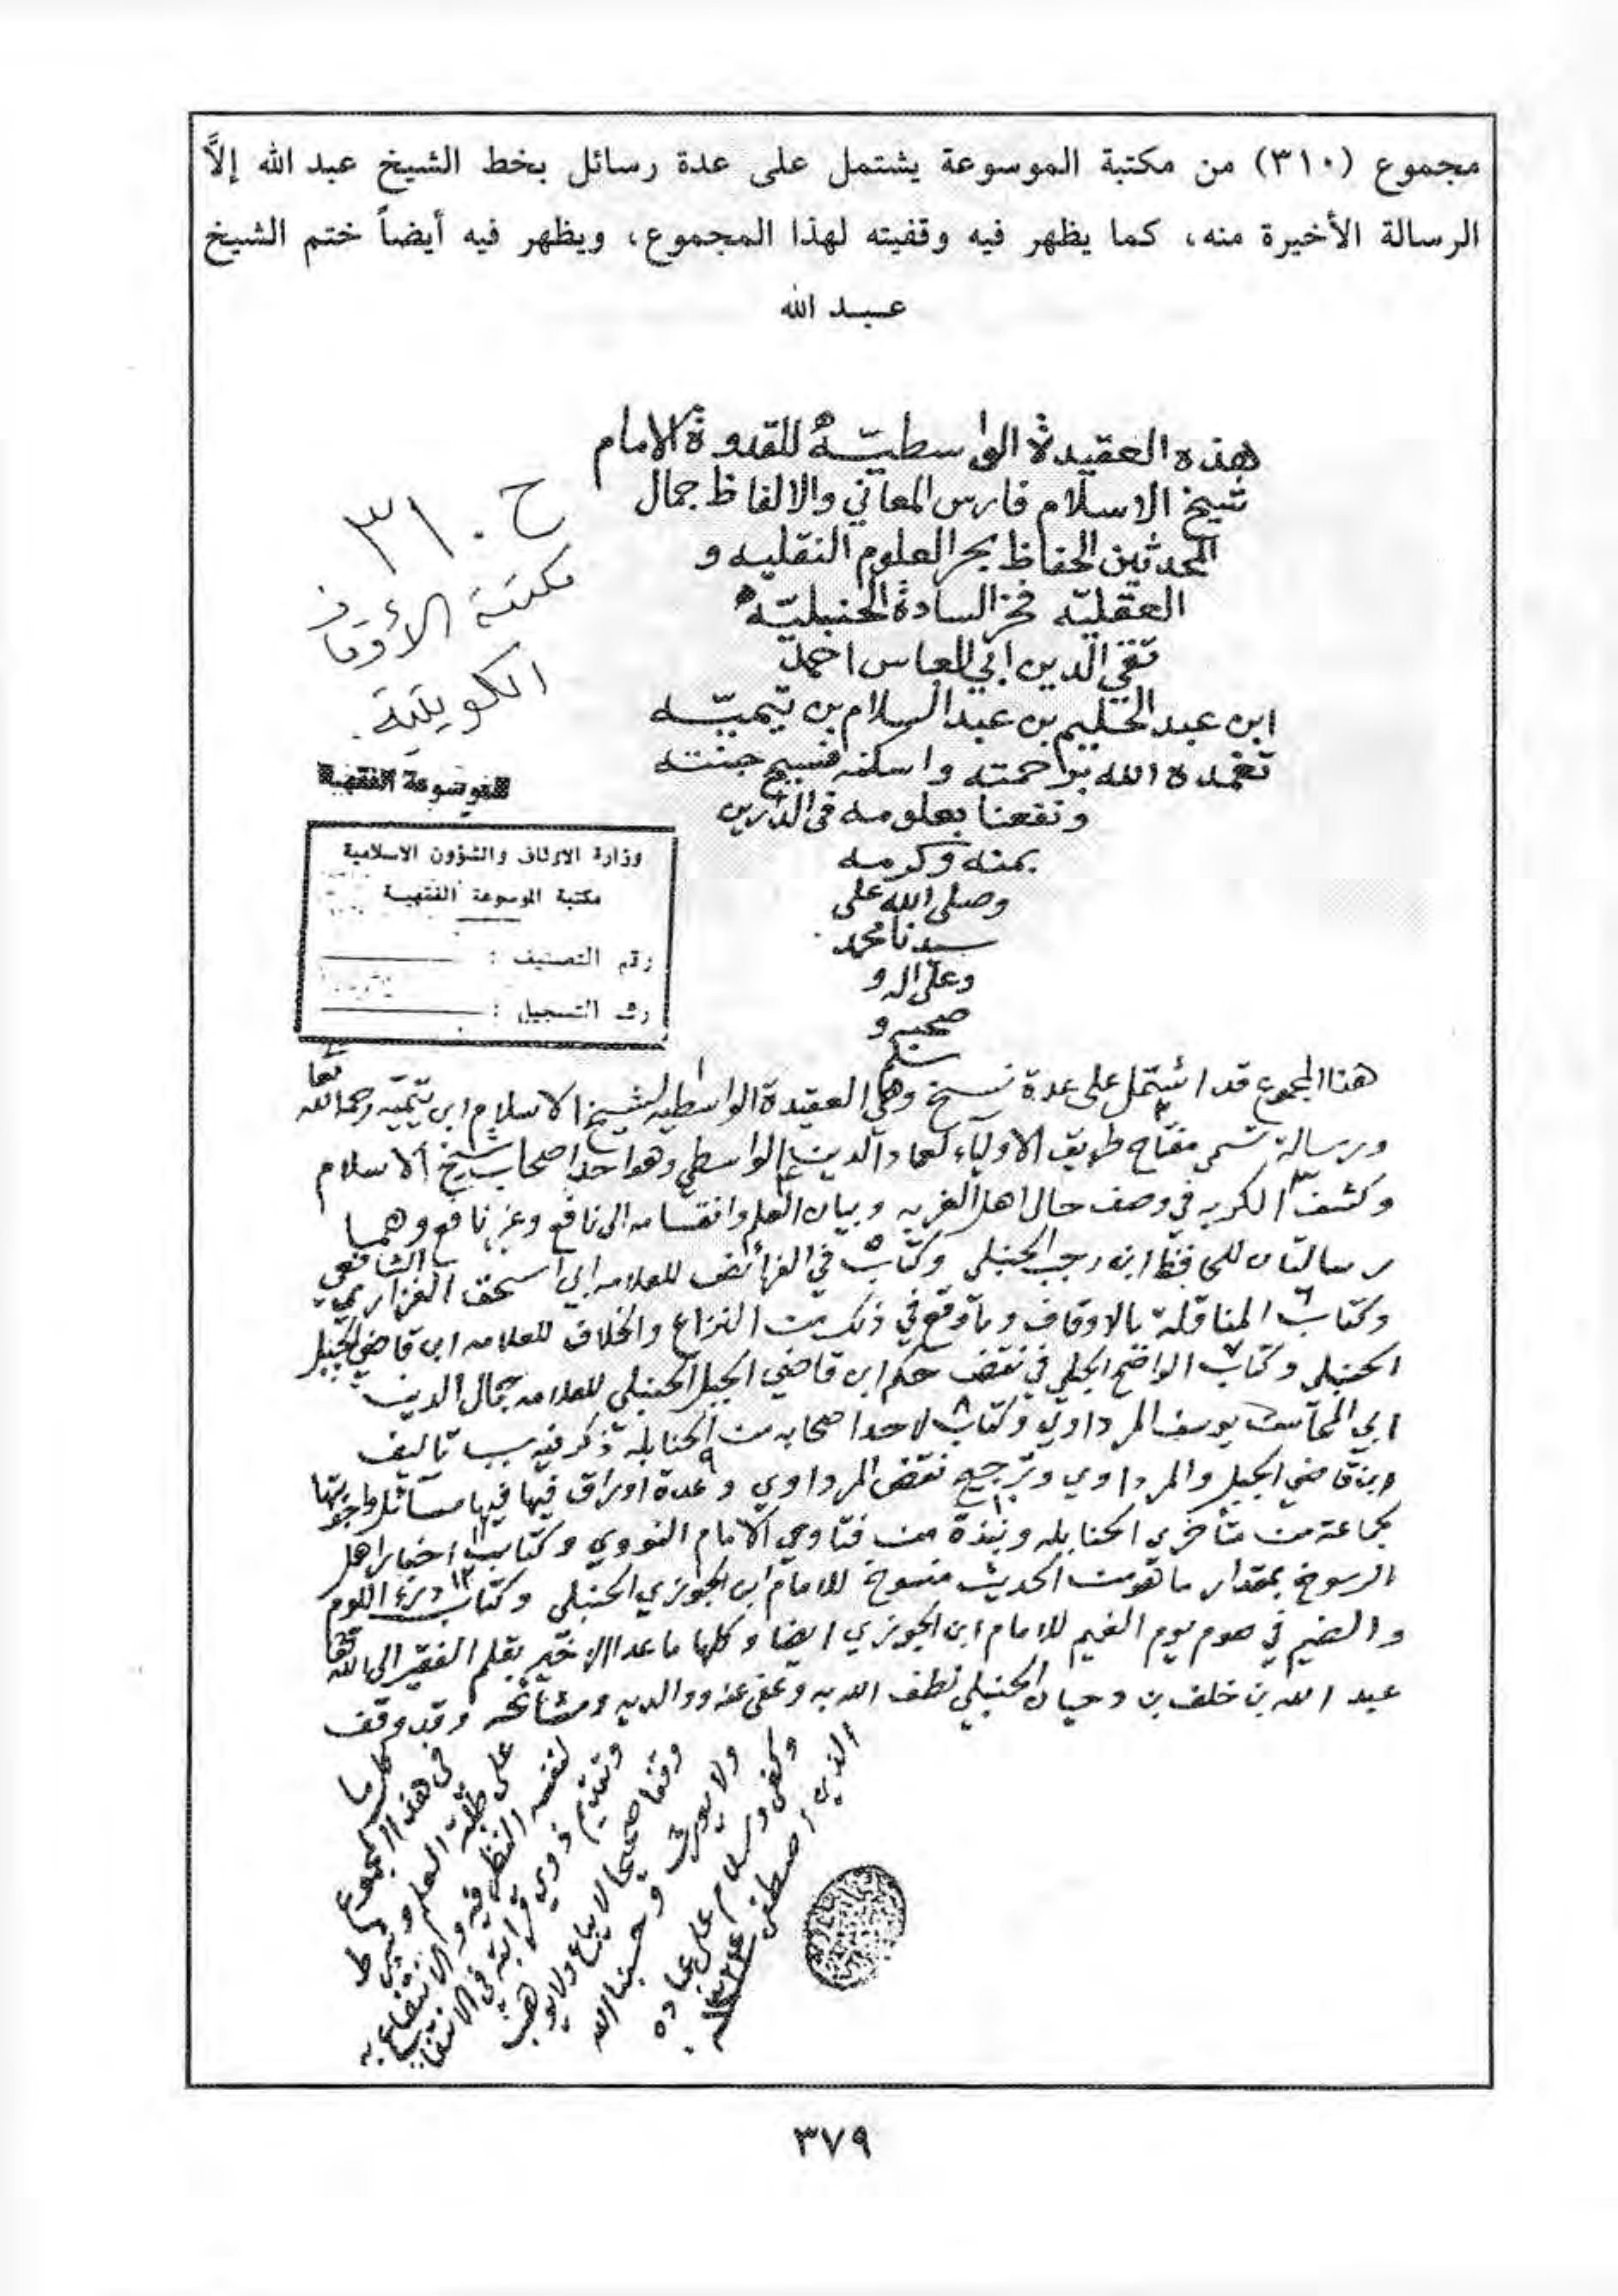 مجموع (٣١٠) من مكتبة الموسوعة يشتمل على عدة رسائل بخط الشيخ عبد الله إلاَّ
الرسالة الأخيرة منه، كما يظهر فيه وقفيته لهذا المجموع، ويظهر فيه أيضاً ختم الشيخ
عبد الله
هذه العقيدة الواسطيّة للقدوة الامام
شيخ الاسلام فارس المعاني والالفاظ جمال
المحدثين الحفاظ بحر العلوم النقليه و
العقليّه فخر السادة الحنبليّه
تقي الدين ابي العباس احمد
ابن عبد الحليم بن عبد السلام بن تيميّه
تغمده الله برحمته واسكنه فسيح جنته
ونفعنا بعلومه في الدارين
بمنه وكرمه
وصلى الله على
سيدنا محمد
وعلى اله و
صحبه و
سلم
ح ٣١٠
مكتبة الأوقاف
الكويتية.
الموسوعة الفقهية
وزارة الاوقاف والشؤون الاسلامية
مكتبة الموسوعة الفقهية
رقم التصنيف :
رقم التسجيل :
هذا المجموع قد اشتمل على عدة نسخ وهي العقيدة الواسطيه لشيخ الاسلام ابن تيميّه رحمه الله تعا
ورسالة تسمى مفتاح طريق الاولياء لعماد الدين الواسطي وهو احد اصحاب شيخ الاسلام
وكشف الكربه في وصف حال اهل الغربه وبيان العلم وانقسامه الى نافع وغير نافع وهما
رسالتان للحافظ ابن رجب الحنبلي وكتاب في الفرائض للعلامه ابي اسحق الفزاري الشافعي
وكتاب المناقلة بالاوقاف وما وقع في ذلك من النزاع والخلاف للعلامه ابن قاضي الجبل
الحنبلي وكتاب الواضح الجلي في نقض حكم ابن قاضي الجبل الحنبلي للعلامه جمال الدين
ابي المحاسن يوسف المرداوي وكتاب لاحد اصحابه من الحنابلة ذكر فيه سبب تاليف
ابن قاضي الجبل والمرداوي وترجيح نقض المرداوي وعدة اوراق فيها فيها مسائل واجوبتها
لجماعة من متأخري الحنابله ونبذة من فتاوي الامام النووي وكتاب اخبار اهل
الرسوخ بمقدار ما هو من الحديث منسوخ للامام ابن الجوزي الحنبلي وكتاب درء اللوم
والضيم في صوم يوم الغيم للامام ابن الجوزي ايضا وكلها ما عدا الاخير بقلم الفقير الى الله تعا
عبد الله بن خلف بن دحيان الحنبلي لطف الله به وعفى عنه ووالديه ومشائخه وقد وقف
كل ما
في هذا المجموع
على طلبة العلم وشرط
لنفسه النظر فيه والانتفاع به
وتقديم ذوي قرابته في الانتفاع
وقفا صحيحا لا يباع ولا يوهب
ولا يورث وحسبنا الله
وكفى وسلام على عباده
الذين اصطفى
٣٧٩